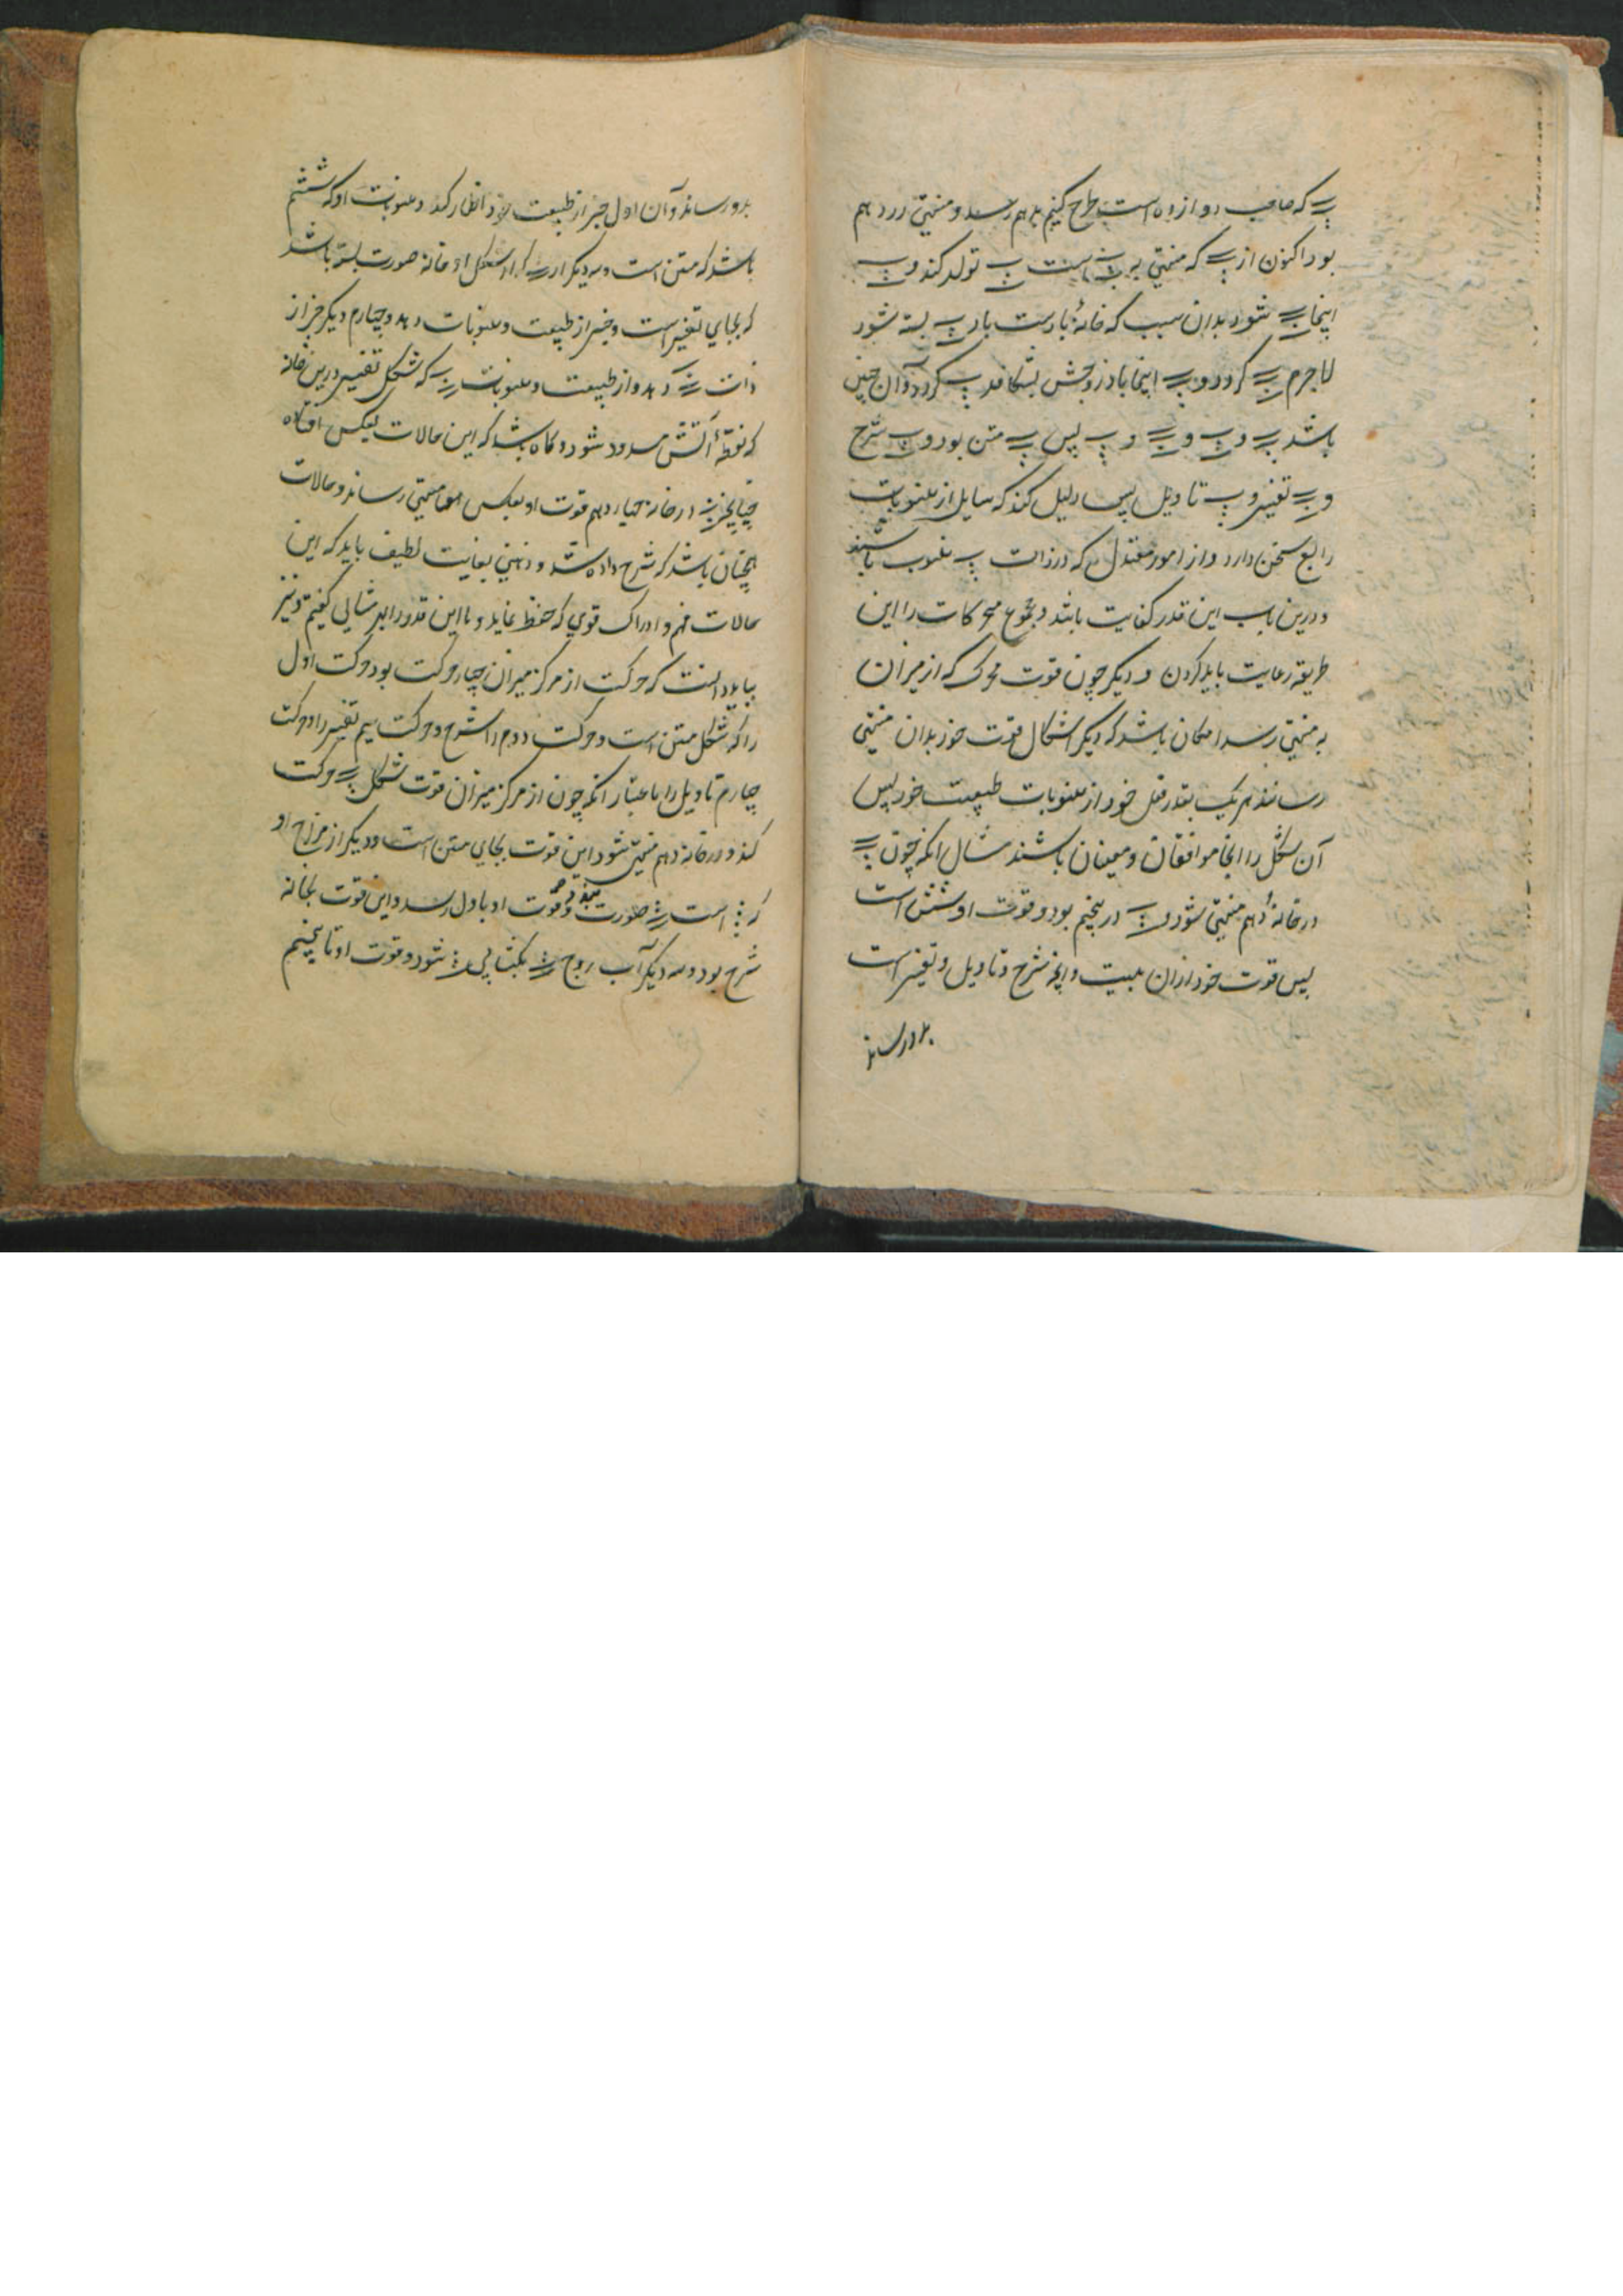 که صاحب دوازده است طرح کنیم بدهم رسد و منتهی در دهم
بود اکنون از که منتهی به است تولد کند و
اینجا شود بدان سبب که خانهٔ بادست باد بسته شود
لاجرم کردد و اینجا باد زوجش بشکافد کردد و آن چنین
باشد و و و پس متن بود و شرح
و تفسیر و تاویل پس دلیل کند که سایل از منسوبات
رابع سخن دارد و از امور معتدل که در ذات منسوب باشند
و درین باب این قدر کفایت باشد و مجموع محرکات را این
طریقه رعایت باید کردن و دیگر چون قوت محرک که از میزان
به منتهی رسد امکان باشد که دیگر اشکال قوت خود بدان منتهی
رسانند هر یک بقدر فعل خود از منسوبات طبیعت خود پس
آن شکل را آنجا موافقان و معینان باشند مثال آنکه چون
در خانهٔ دهم منتهی شود و در پنجم بود و قوت او شش است
پس قوت خود از آن بیت و آنچه شرح و تاویل و تفسیر است
بدو رساند
بدو رساند و آن اول خبر از طبیعت خود اظهار کند و منسوبات او که ششم
باشد که متن است و سه دیگر از شکل او خانه صورت بسته باشد
که بجای تفسیر است و خبر از طبیعت و منسوبات دهد و چهارم دیگر خبر از
ذات دهد و از طبیعت و منسوبات که شکل تفسیر درین خانه
که نقطهٔ آتش مسدود شود و گاه باشد که این حالات بعکس افتاده
چنانچه در خانه چهاردهم قوت او بعکس رساند و حالات
همچنان باشد که شرح داده شد و ذهنی بغایت لطیف باید که این
حالات فهم و ادراک قوی که حفظ نماید و با این قدر را بر مثالی کفیم و نیز
بباید دانست که حرکت از مرکز میزان چهار حرکت بود حرکت اول
را که شکل متن است و حرکت دوم را شرح و حرکت سیم تفسیر را و حرکت
چهارم تاویل را باعتبار آنکه چون از مرکز میزان قوت شکل حرکت
کند و در خانه دهم منتهی شود این قوت بجای متن است و دیگر از مزاج او
که است صورت بندد و قوت او باول رسد و این قوت بخانه
شرح بود و سه دیگر آب زوج بکشایی شود و قوت او تا پنجم